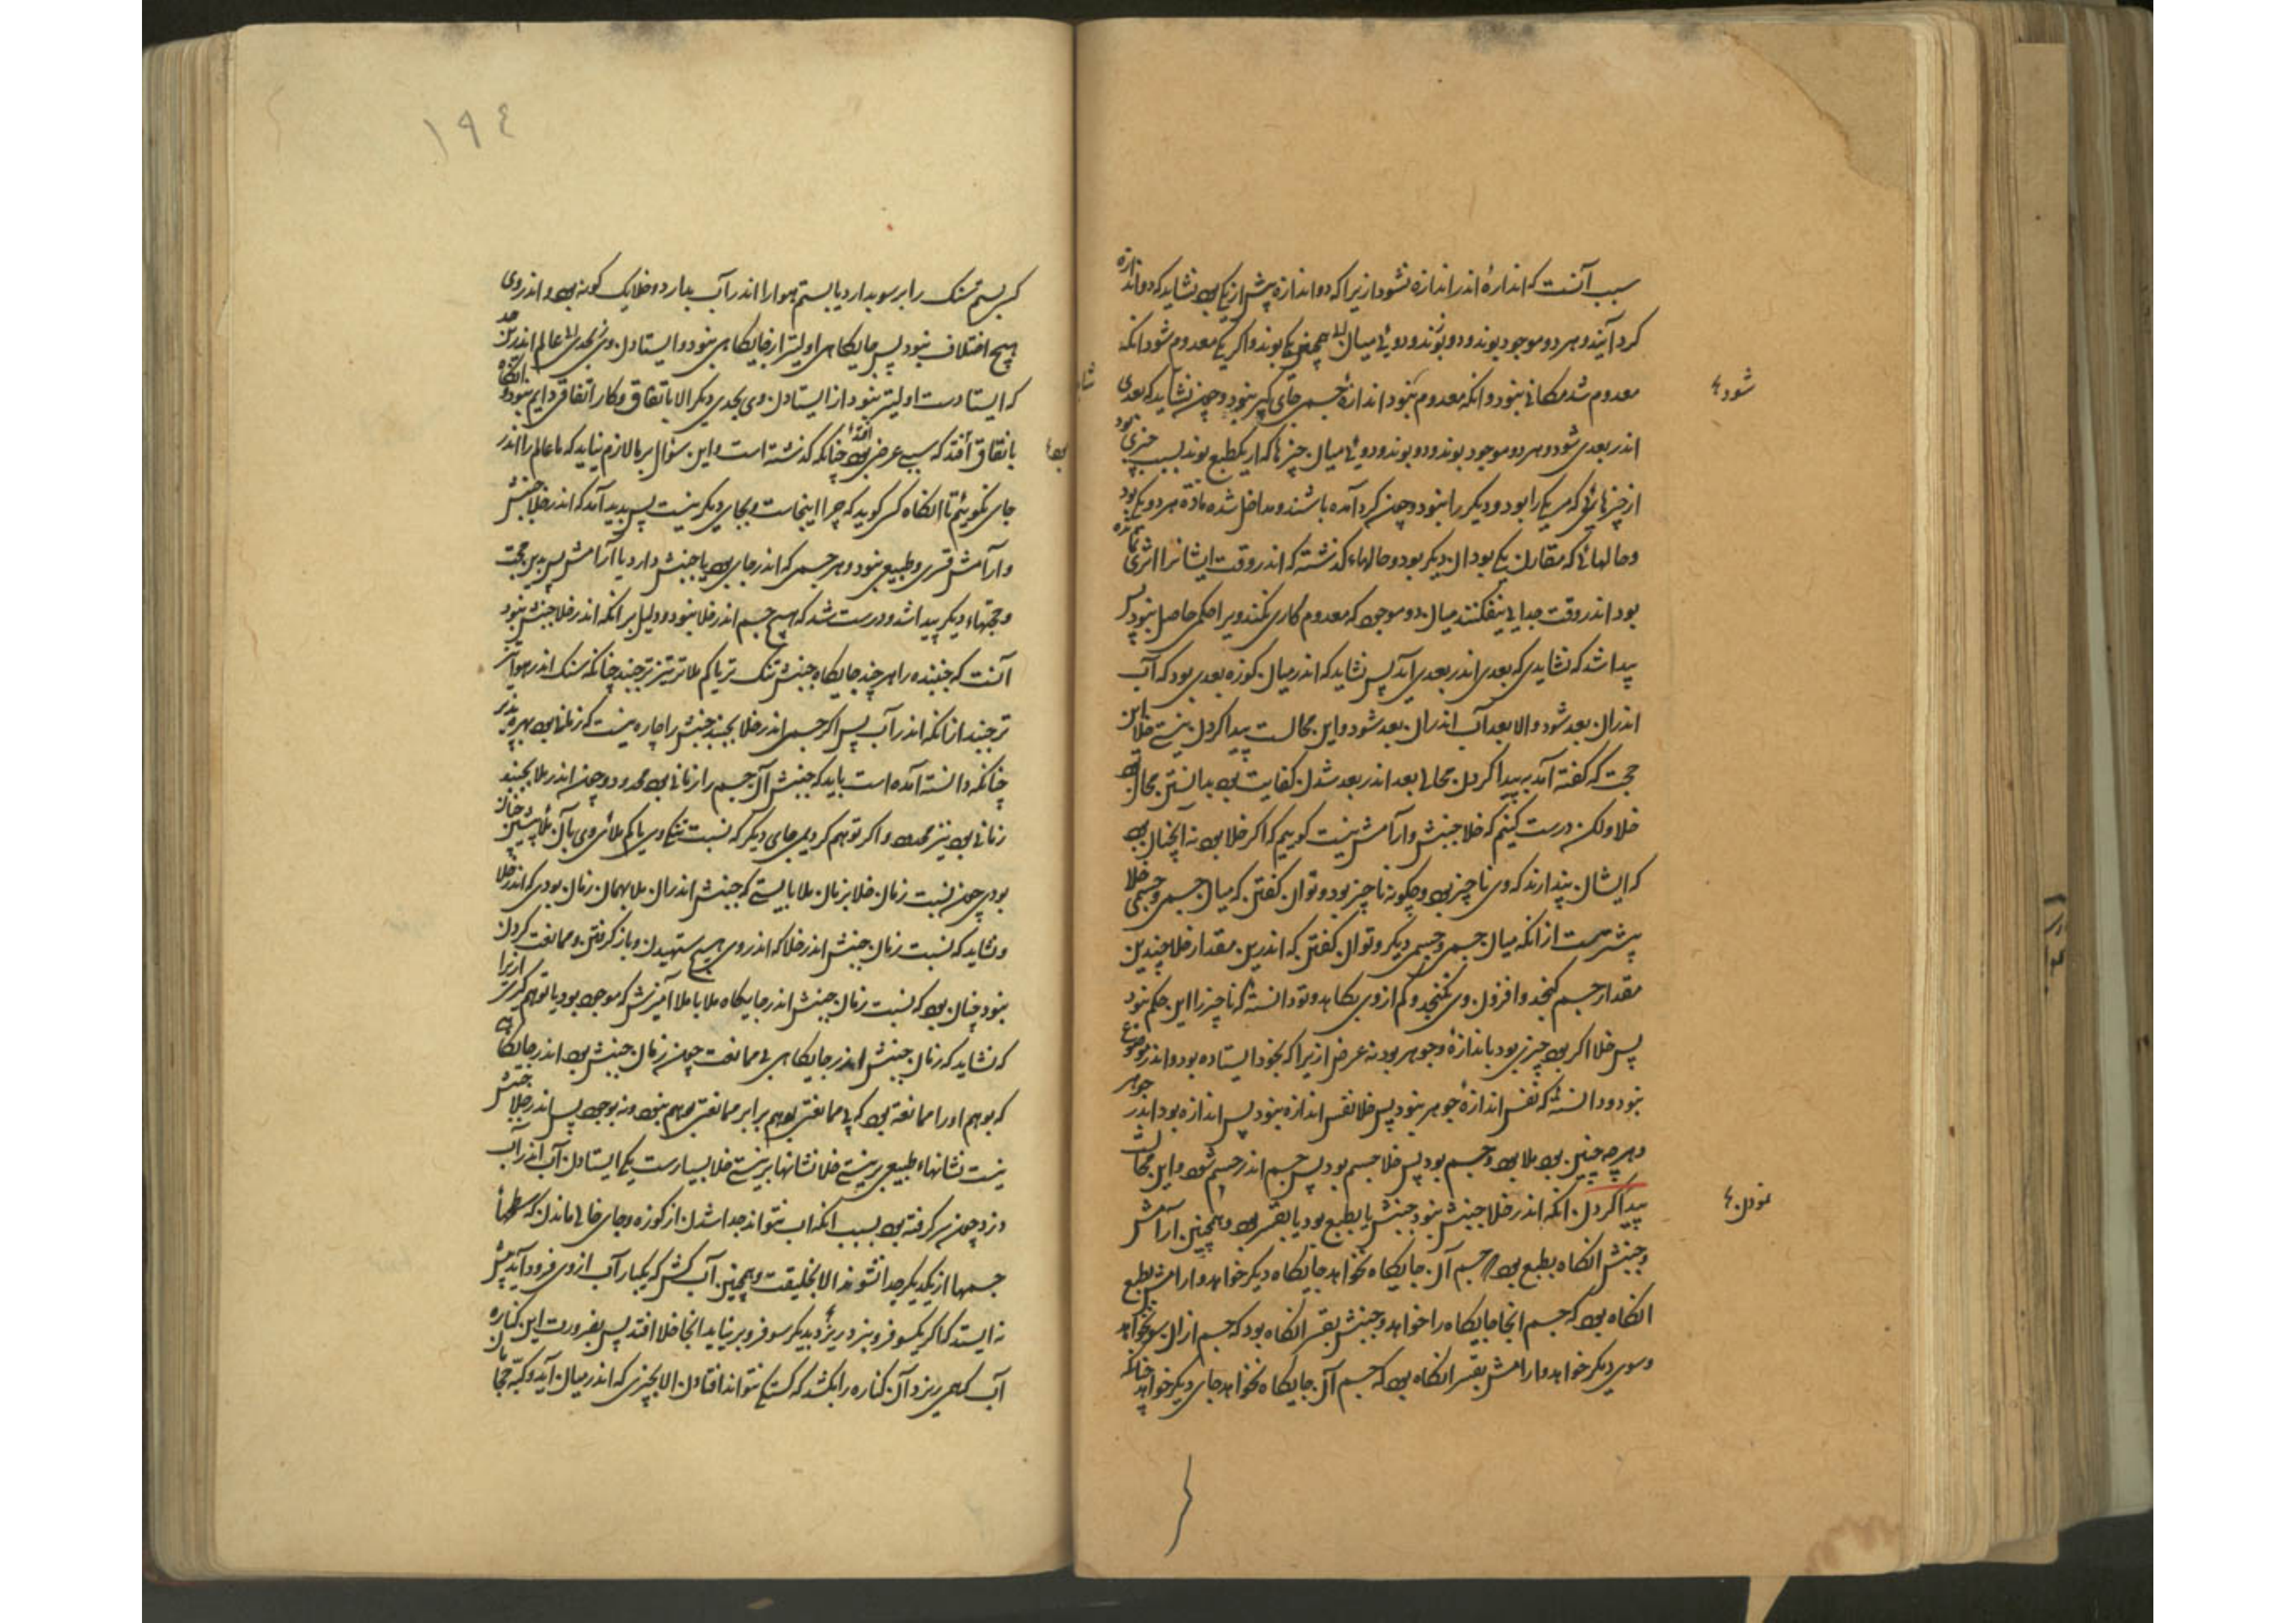 سبب آنست که اندازهٔ اندر اندازه نشود ازیرا که دو اندازه بیش از یکی بود نشاید که دو اندازه
گرد آیند و هر دو موجود بوند و دو بوند و دوئی میان همچنین یکی بوند و اگر یکی معدوم شود آنکه
معدوم شد مکانی نبود و آنکه معدوم نبود اندازهٔ جسمی جای گیر نبود و چون نشاید که بعدی
اندر بعدی شود و هر دو موجود بوند و دو بوند و دوئی میان چیزها که از یک طبع بوند بسبب چیزی بود
از چیزهائی که مر یکی را بود و دیگر را نبود و چون گرد آمده باشند و مداخل شده مادّهٔ هر دو یکی بود
و حالهائی که مقارن یکی بود آن دیگر بود و حالهاء گذشته که اندر وقت ایشانرا اثری نمانده
بود اندر وقت جدایی نیفکنند میان دو موجود که معدوم کاری نکند و یرا حکمی حاصل نبود پس
پیدا شد که نشاید که بعدی اندر بعدی آید پس نشاید که اندر میان کوزه بعدی بود که آب
اندر آن بعد شود و الا بعد آب اندر آن بعد شود و این محالست پیدا کردن نیستی خلا این
حجت که گفته آمد به پیدا کردن محالی بعد اندر بعد شدن کفایت بود بدانستن محالی
خلا ولکن درست کنیم که خلا جنبش و آرامش نیست گوییم که اگر خلا بود نه آنچنان بود
که ایشان پندارند که وی ناچیز بود و چگونه ناچیز بود و توان گفتن که میان جسمی و جسمی خلا
بیشترست از آنکه میان جسمی و جسمی دیگر و توان گفتن که اندرین مقدار خلا چندین
مقدار جسم گنجد و افزون وی نگنجد و کم از وی بکاهد و تو دانستهٔ که ناچیز را این حکم نبود
پس خلا اگر بود چیزی بود باندازهٔ و جوهر بود نه عرض ازیرا که بخود ایستاده بود و اندر موضوع
نبود و دانستهٔ که نفس اندازهٔ جوهر نبود پس خلا نفس اندازه نبود پس اندازه بود اندر جوهر
و هر چه چنین بود ملا بود و جسم بود پس خلا جسم بود پس جسم اندر جسم شود و این محالست
پیدا کردن آنکه اندر خلا جنبش نبود جنبش یا بطبع بود یا بقسر بود و همچنین آرامش
و جنبش آنگاه بطبع بود که جسم آن جایگاه نخواهد جایگاه دیگر خواهد و آرامش بطبع
آنگاه بود که جسم آنجا جایگاه را خواهد و جنبش بقسر آنگاه بود که جسم از آن سو نخواهد
و سوی دیگر خواهد و آرامش بقسر آنگاه بود که جسم آن جایگاه نخواهد جای دیگر خواهد چنانکه
شود
نمودن
۱۹٤
کسی بستم سنگ را بر سو بدارد یا بستم هوا را اندر آب بدارد و خلا یک گونه بود و اندر وی
هیچ اختلاف نبود پس جایگاهی اولیتر از جایگاهی نبود و ایستادن وی بحدی عالم اندرین حد
که ایستادست اولیتر نبود از ایستادن وی بحدی دیگر الا باتفاق و کار اتفاقی دایم نبود و آنگاه
باتفاق افتد که سببی عرضی بود چنانکه گذشته است و این سؤال بر ما لازم نیاید که ما عالم را اندر
جای نگوییم تا آنگاه کسی گوید که چرا اینجاست و بجای دیگر نیست پس پدید آمد که اندر خلا جنبش
و آرامش قسری و طبیعی نبود و هر جسمی که اندر جای بود یا جنبش دارد یا آرامش پس بدین حجت
و حجتهاء دیگر پیدا شد و درست شد که هیچ جسم اندر خلا نبود و دلیل بر آنکه اندر خلا جنبش نبود
آنست که جنبنده را هر چند جایگاه جنبش تنک تر یا کم ملا تر تیز تر جنبد چنانکه سنگ اندر هوا تیز
تر جنبد از آنکه اندر آب پس اگر جسمی اندر خلا بجنبد جنبش را چاره نیست که زمانی بود بهره پذیر
چنانکه دانسته آمده است باید که جنبش آن جسم را زمانی بود محدود و چون اندر ملا بجنبد
زمانی بود نیز محدود و اگر توهم کردی جای دیگر که نسبت تنکی وی یا کم ملائی وی بآن ملا پیشین چنان
بودی چون نسبت زمان خلا بزمان ملا بایستی که جنبش اندر آن ملا بهمان زمان بودی که اندر خلا
و نشاید که نسبت زمان جنبش اندر خلا که اندر وی هیچ ستهیدن و باز گرفتن و ممانعت کردن
نبود چنان بود که نسبت زمان جنبش اندر جایگاه ملا با ملا آمیزش که موجود بود یا توهم کری ازیرا
که نشاید که زمان جنبش اندر جایگاهی بی ممانعت چون زمان جنبش بود اندر جایگاهی
که بوهم او را ممانعه بود که بی ممانعتی بوهم برابر ممانعتی بوهم نبود و نه بوجود پس اندر خلا جنبش
نیست نشانهاء طبیعی بر نیستی خلا نشانها بر نیستی خلا بسیارست یکی ایستادن آب اندر آب
دزد چون سر گرفته بود بسبب آنکه آب نتواند جدا شدن از کوزه و جای خالی ماندن که سطحهاء
جسمها از یکدیگر جدا نشوند الا بخلیفت و همچنین آب کش که یکبار آب از وی فرود آید بیش
نه ایستد که اگر یکسو فروبرد ریزد و بدیگر سو فروبر نیاید آنجا خلا افتد پس بضرورت این کناره
آب که همی ریزد آن کناره را بکشد که گسستگی نتواند افتادن الا بچیزی که اندر میان آید و کبّه حجامان